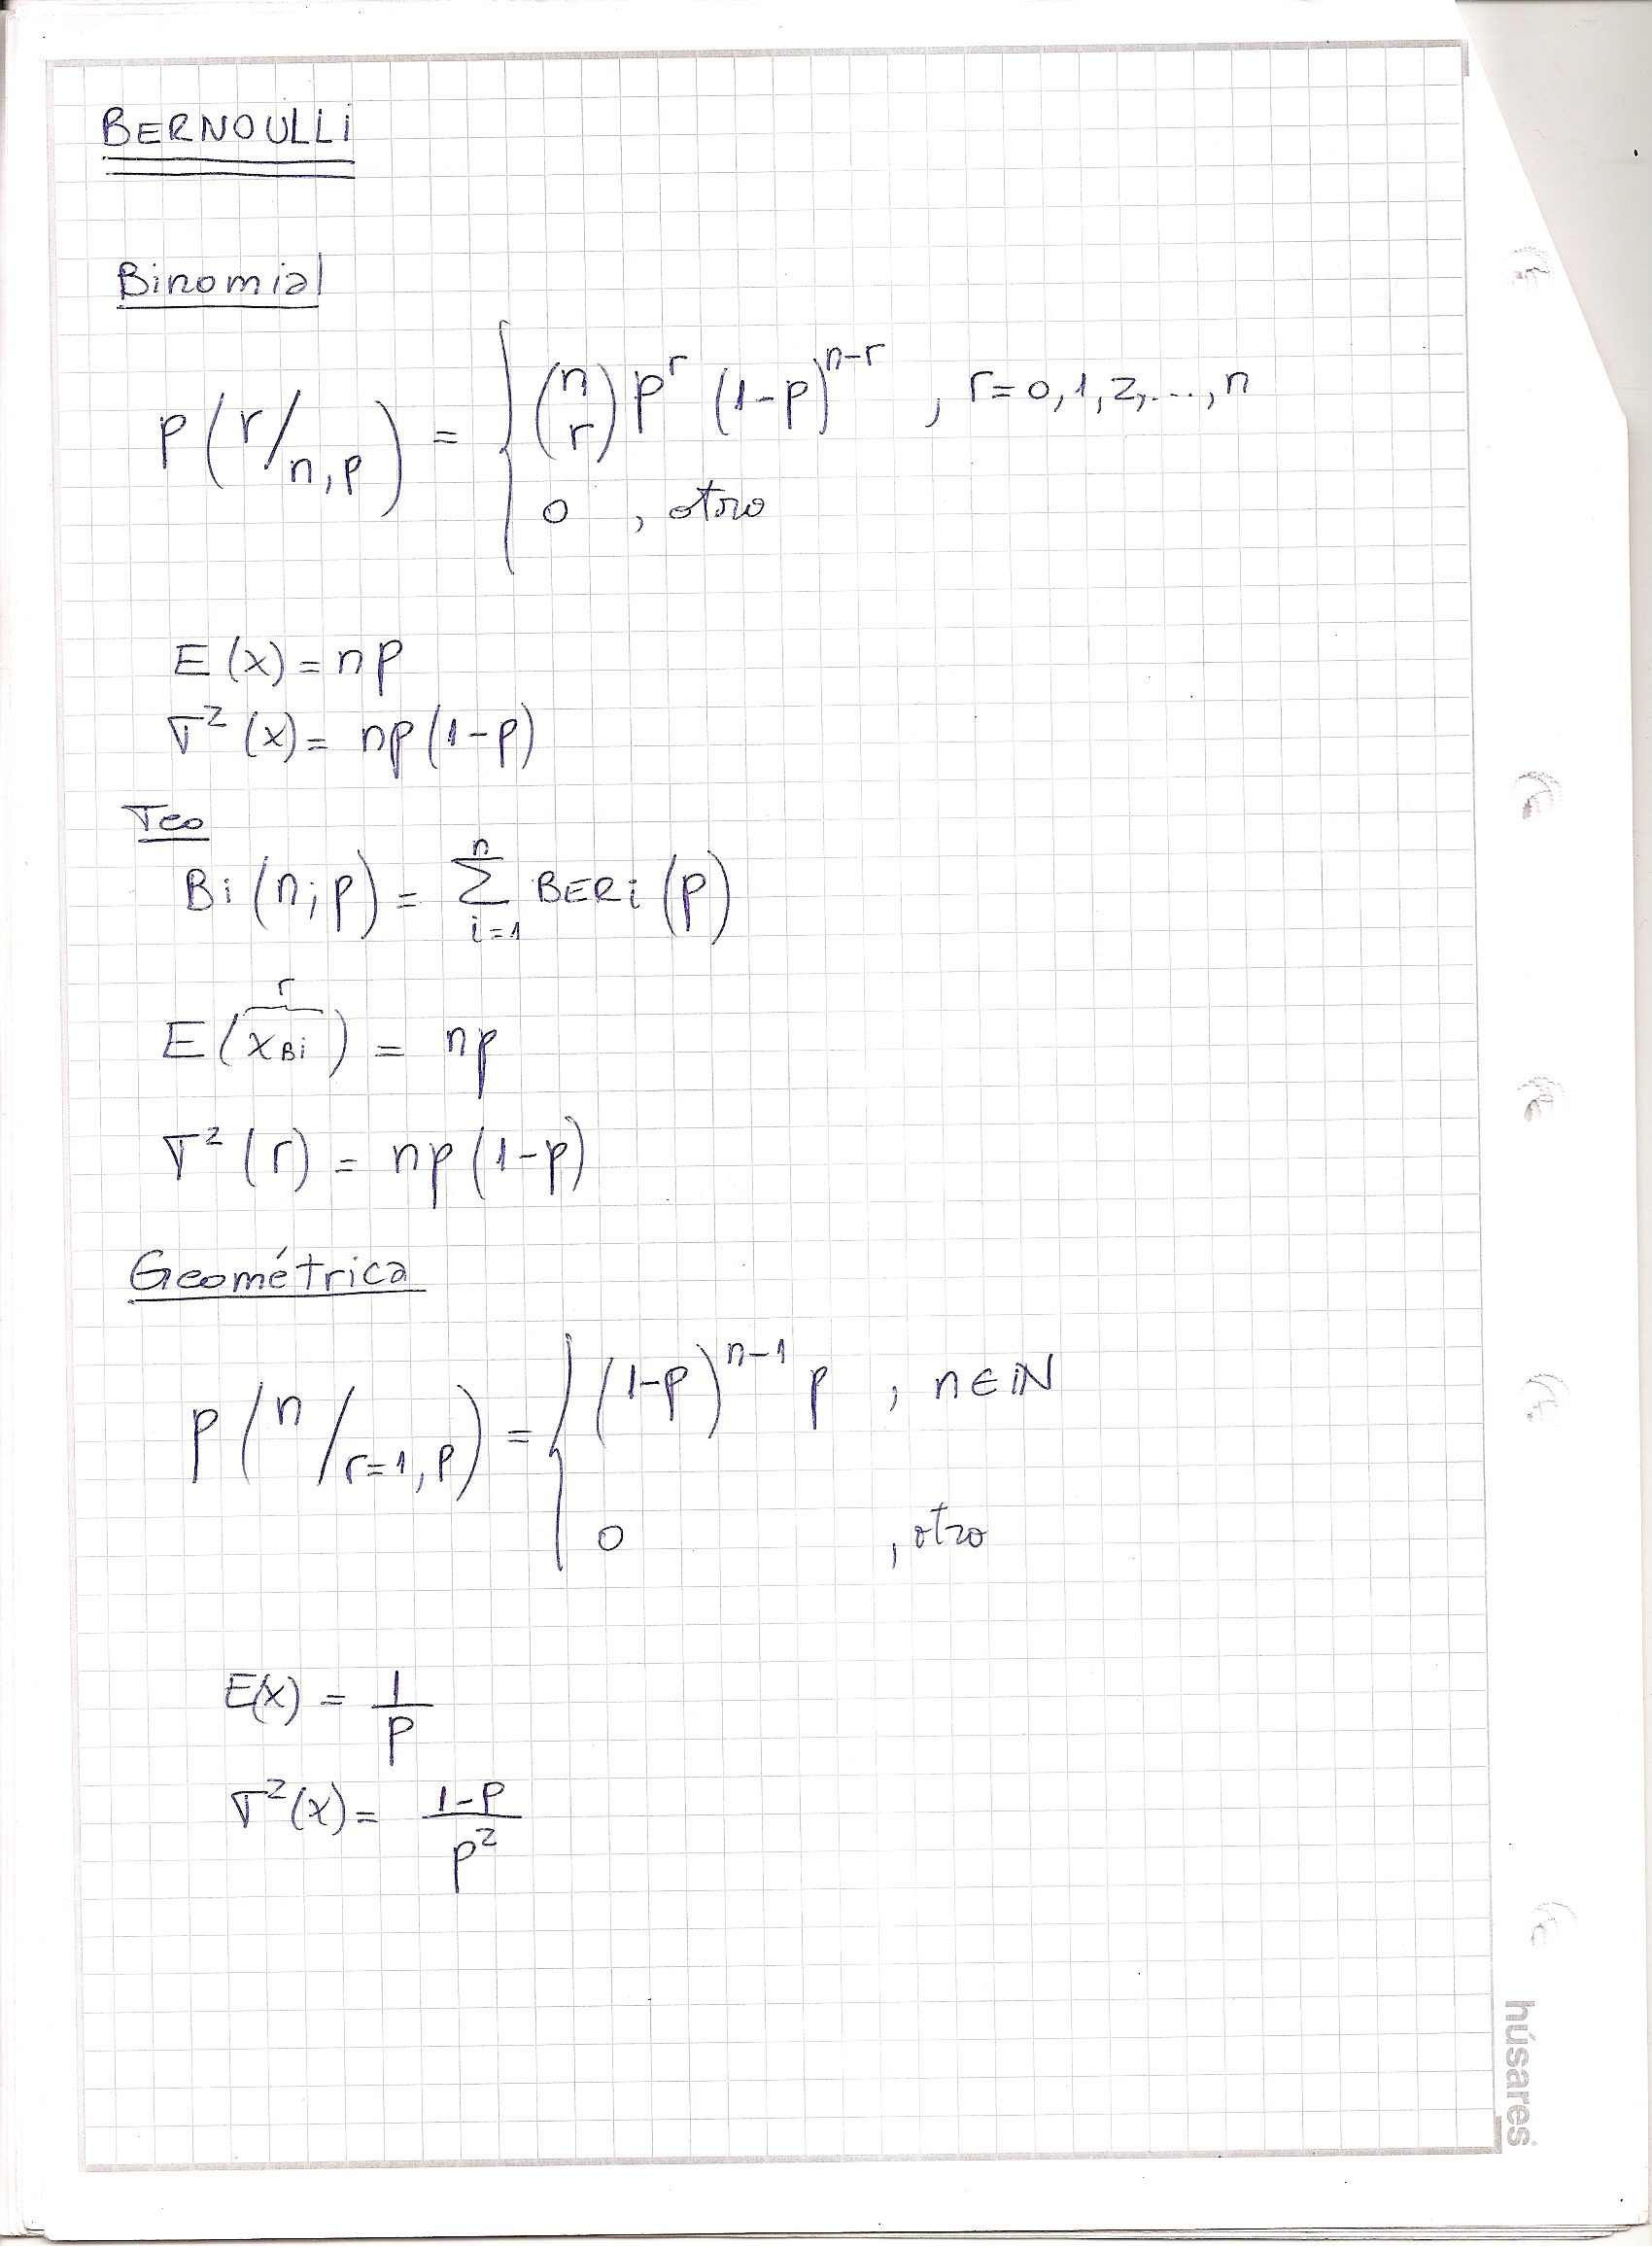 BERNOULLi
Binomial
P(r/n,p) = { (n r) p^r (1-p)^(n-r) , r=0,1,2,...,n
0 , otro
E(x) = np
σ²(x) = np(1-p)
Teo
Bi(n;p) = Σ_{i=1}^{n} BERi(p)
r
E(xBi) = np
σ²(r) = np(1-p)
Geométrica
P(n/r=1,p) = { (1-p)^(n-1) p , n∈ℕ
0 , otro
E(x) = 1/p
σ²(x) = (1-p)/p²
húsares